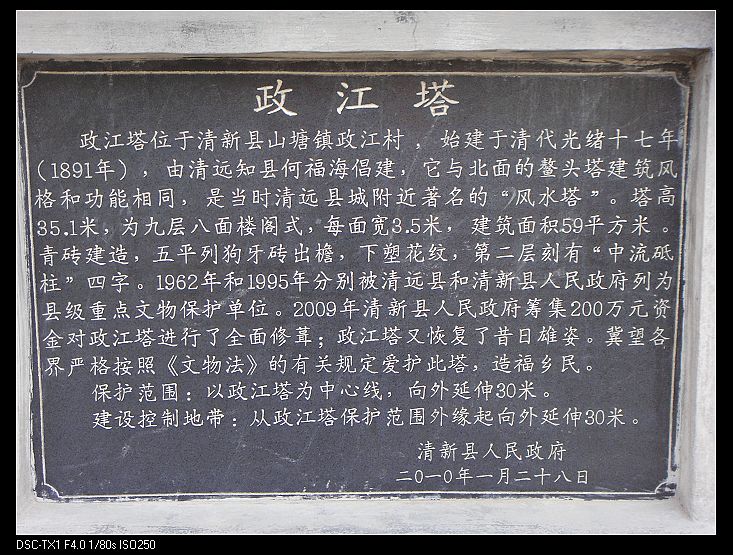 政江塔
政江塔位于清新县山塘镇政江村，始建于清代光绪十七年
（1891年），由清远知县何福海倡建，它与北面的鳌头塔建筑风
格和功能相同，是当时清远县城附近著名的“风水塔”。塔高
35.1米，为九层八面楼阁式，每面宽3.5米，建筑面积59平方米。
青砖建造，五平列狗牙砖出檐，下塑花纹，第二层刻有“中流砥
柱”四字。1962年和1995年分别被清远县和清新县人民政府列为
县级重点文物保护单位。2009年清新县人民政府筹集200万元资
金对政江塔进行了全面修葺；政江塔又恢复了昔日雄姿。冀望各
界严格按照《文物法》的有关规定爱护此塔，造福乡民。
保护范围：以政江塔为中心线，向外延伸30米。
建设控制地带：从政江塔保护范围外缘起向外延伸30米。
清新县人民政府
二0一0年一月二十八日
DSC-TX1 F4.0 1/80s ISO250